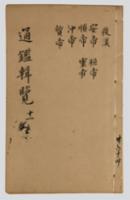 後漢
安帝 桓帝
順帝 靈帝
沖帝
質帝
通鑑輯覽